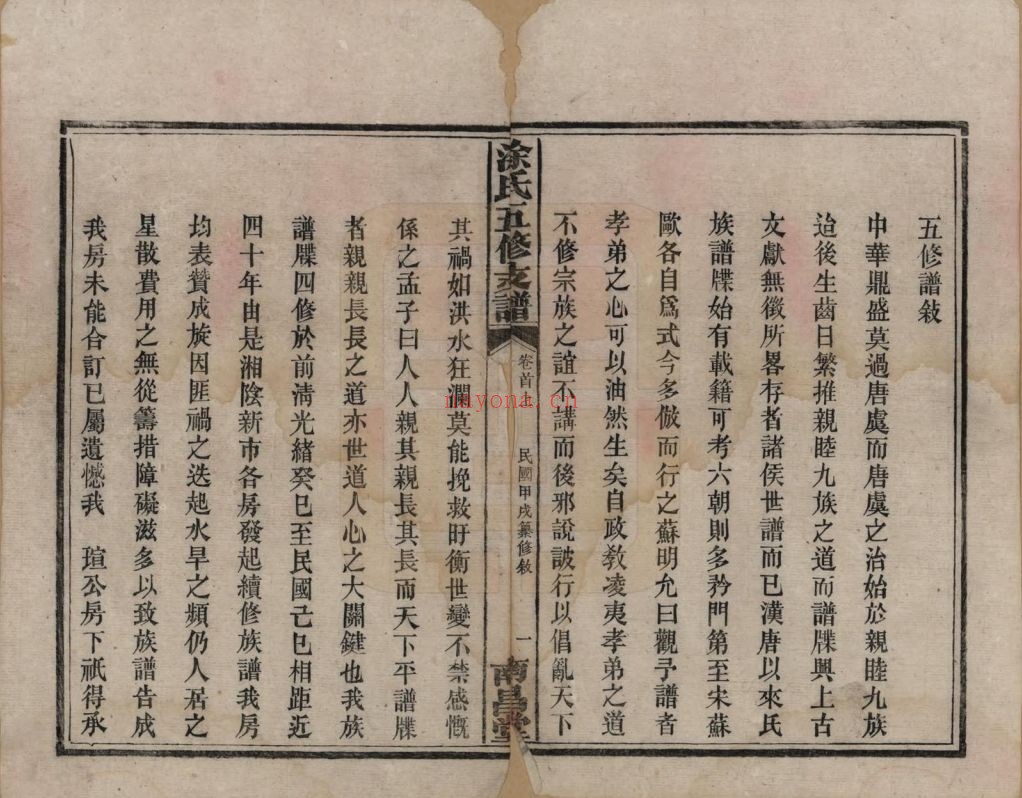 五修譜敘
中華鼎盛莫過唐虞而唐虞之治始於親睦九族
迨後生齒日繁推親睦九族之道而譜牒興上古
文獻無徵所畧存者諸侯世譜而已漢唐以來氏
族譜牒始有載籍可考六朝則多矜門第至宋蘇
歐各自爲式今多倣而行之蘇明允曰觀予譜者
孝弟之心可以油然生矣自政敎凌夷孝弟之道
不修宗族之誼不講而後邪說詖行以倡亂天下
涂氏五修支譜
卷首
民國甲戌纂修敘
一
南昌堂
其禍如洪水狂瀾莫能挽救盱衡世變不禁感慨
係之孟子曰人人親其親長其長而天下平譜牒
者親親長長之道亦世道人心之大關鍵也我族
譜牒四修於前淸光緒癸巳至民國己巳相距近
四十年由是湘陰新市各房發起續修族譜我房
均表贊成旋因匪禍之迭起水旱之頻仍人居之
星散費用之無從籌措障礙滋多以致族譜告成
我房未能合訂已屬遺憾我 瑄公房下祇得承
nayona.cn